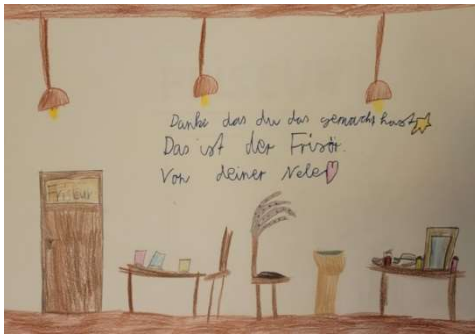 Danke das du das gemacht hast
Das ist der Frisör.
Von deiner Nele
Friseur